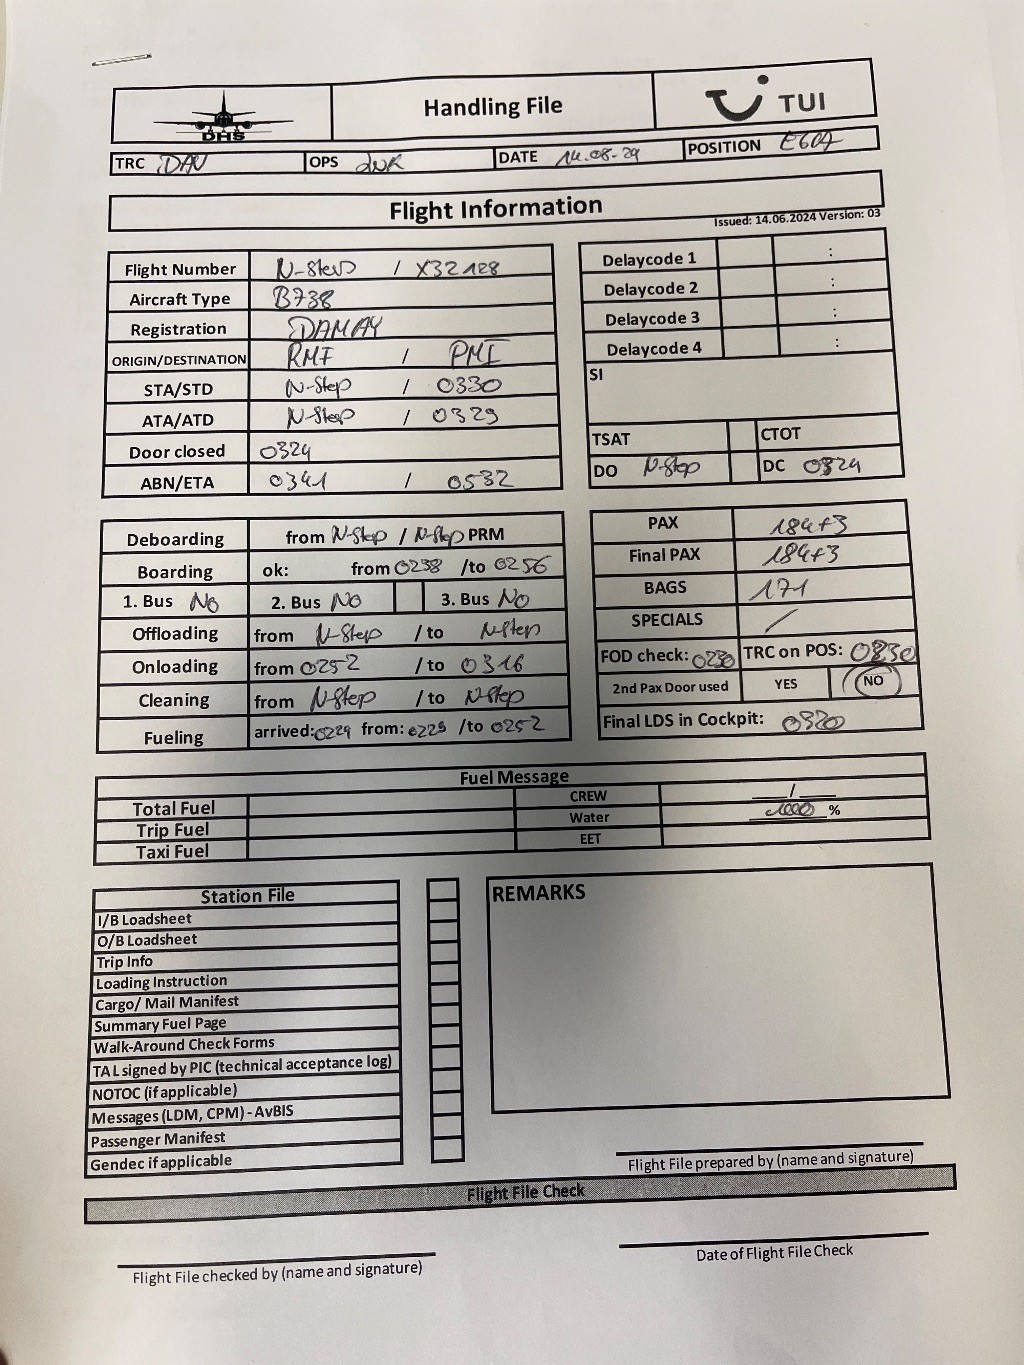 DHS
Handling File
TUI
TRC DAV OPS DATE 14.08.24 POSITION
Flight Information
Issued: 14.06.2024 Version: 03
Flight Number N-Step / X32128
Aircraft Type B738
Registration DAMAY
ORIGIN/DESTINATION RMF / PMI
STA/STD N-Step / 0330
ATA/ATD N-Step / 0329
Door closed 0324
ABN/ETA 0341 / 0532
Delaycode 1 :
Delaycode 2 :
Delaycode 3 :
Delaycode 4 :
SI
TSAT CTOT
DO N-Step DC 0324
Deboarding from N-Step / N-Step PRM
Boarding ok: from 0238 /to 0256
1. Bus No 2. Bus NO 3. Bus No
Offloading from N-Step / to N-Step
Onloading from 0252 / to 0316
Cleaning from N-Step / to N-Step
Fueling arrived: 0224 from: 0225 /to 0252
PAX 184+3
Final PAX 184+3
BAGS 171
SPECIALS /
FOD check: 0230 TRC on POS: 0230
2nd Pax Door used YES NO
Final LDS in Cockpit: 0320
Fuel Message
Total Fuel CREW /
Trip Fuel Water %
Taxi Fuel EET
Station File
I/B Loadsheet
O/B Loadsheet
Trip Info
Loading Instruction
Cargo/ Mail Manifest
Summary Fuel Page
Walk-Around Check Forms
TAL signed by PIC (technical acceptance log)
NOTOC (if applicable)
Messages (LDM, CPM) - AvBIS
Passenger Manifest
Gendec if applicable
REMARKS
Flight File prepared by (name and signature)
Flight File Check
Flight File checked by (name and signature)
Date of Flight File Check